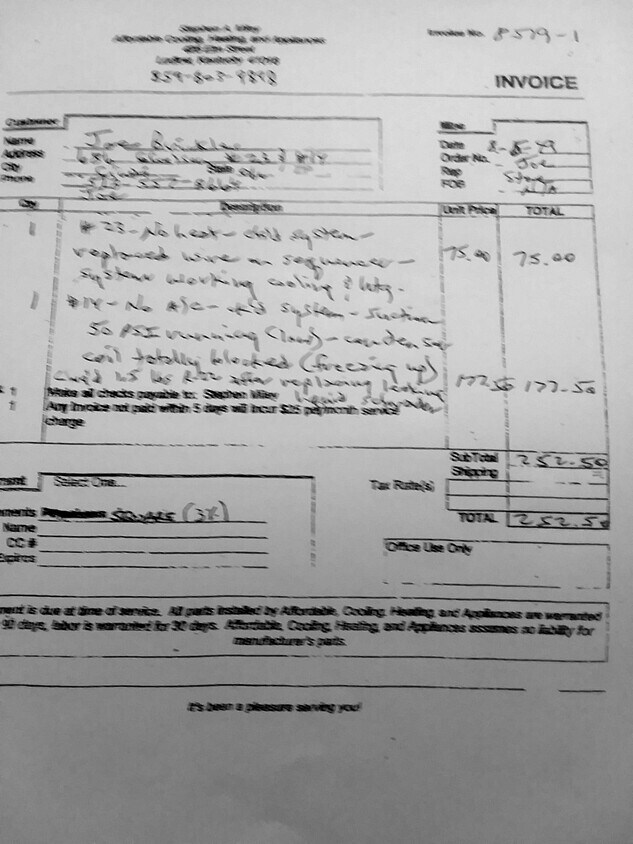 Stephen A. Wiley
Affordable Cooling, Heating, and Appliances
Street
Kentucky
859-803-9898
Invoice No. 8579-1
INVOICE
Customer
Name Joe
Address 656 #23 & #14
City State
Phone
Joe
Misc
Date
Order No. Joe
Rep Steve
FOB N/A
Qty Description Unit Price TOTAL
1 #23 - No heat - chk'd system -
replaced wire on sequencer -
system working cooling & htg. 75.00 75.00
1 #14 - No A/C - chk'd system - suction
50 PSI running (low) - condenser
coil totally blocked (freezing up)
1.5 lbs R-22 after replacing leaking
liquid schrader 177.50 177.50
Make all checks payable to: Stephen Wiley
Any invoice not paid within 5 days will incur $25 per/month service
charge
SubTotal 252.50
Shipping
Tax Rate(s)
TOTAL 252.50
Select One...
Square (3%)
Name
CC #
Expires
Office Use Only
ment is due at time of service. All parts installed by Affordable, Cooling, Heating, and Appliances are warranted
90 days, labor is warranted for 30 days. Affordable, Cooling, Heating, and Appliances assumes no liability for
manufacturer's parts.
It's been a pleasure serving you!